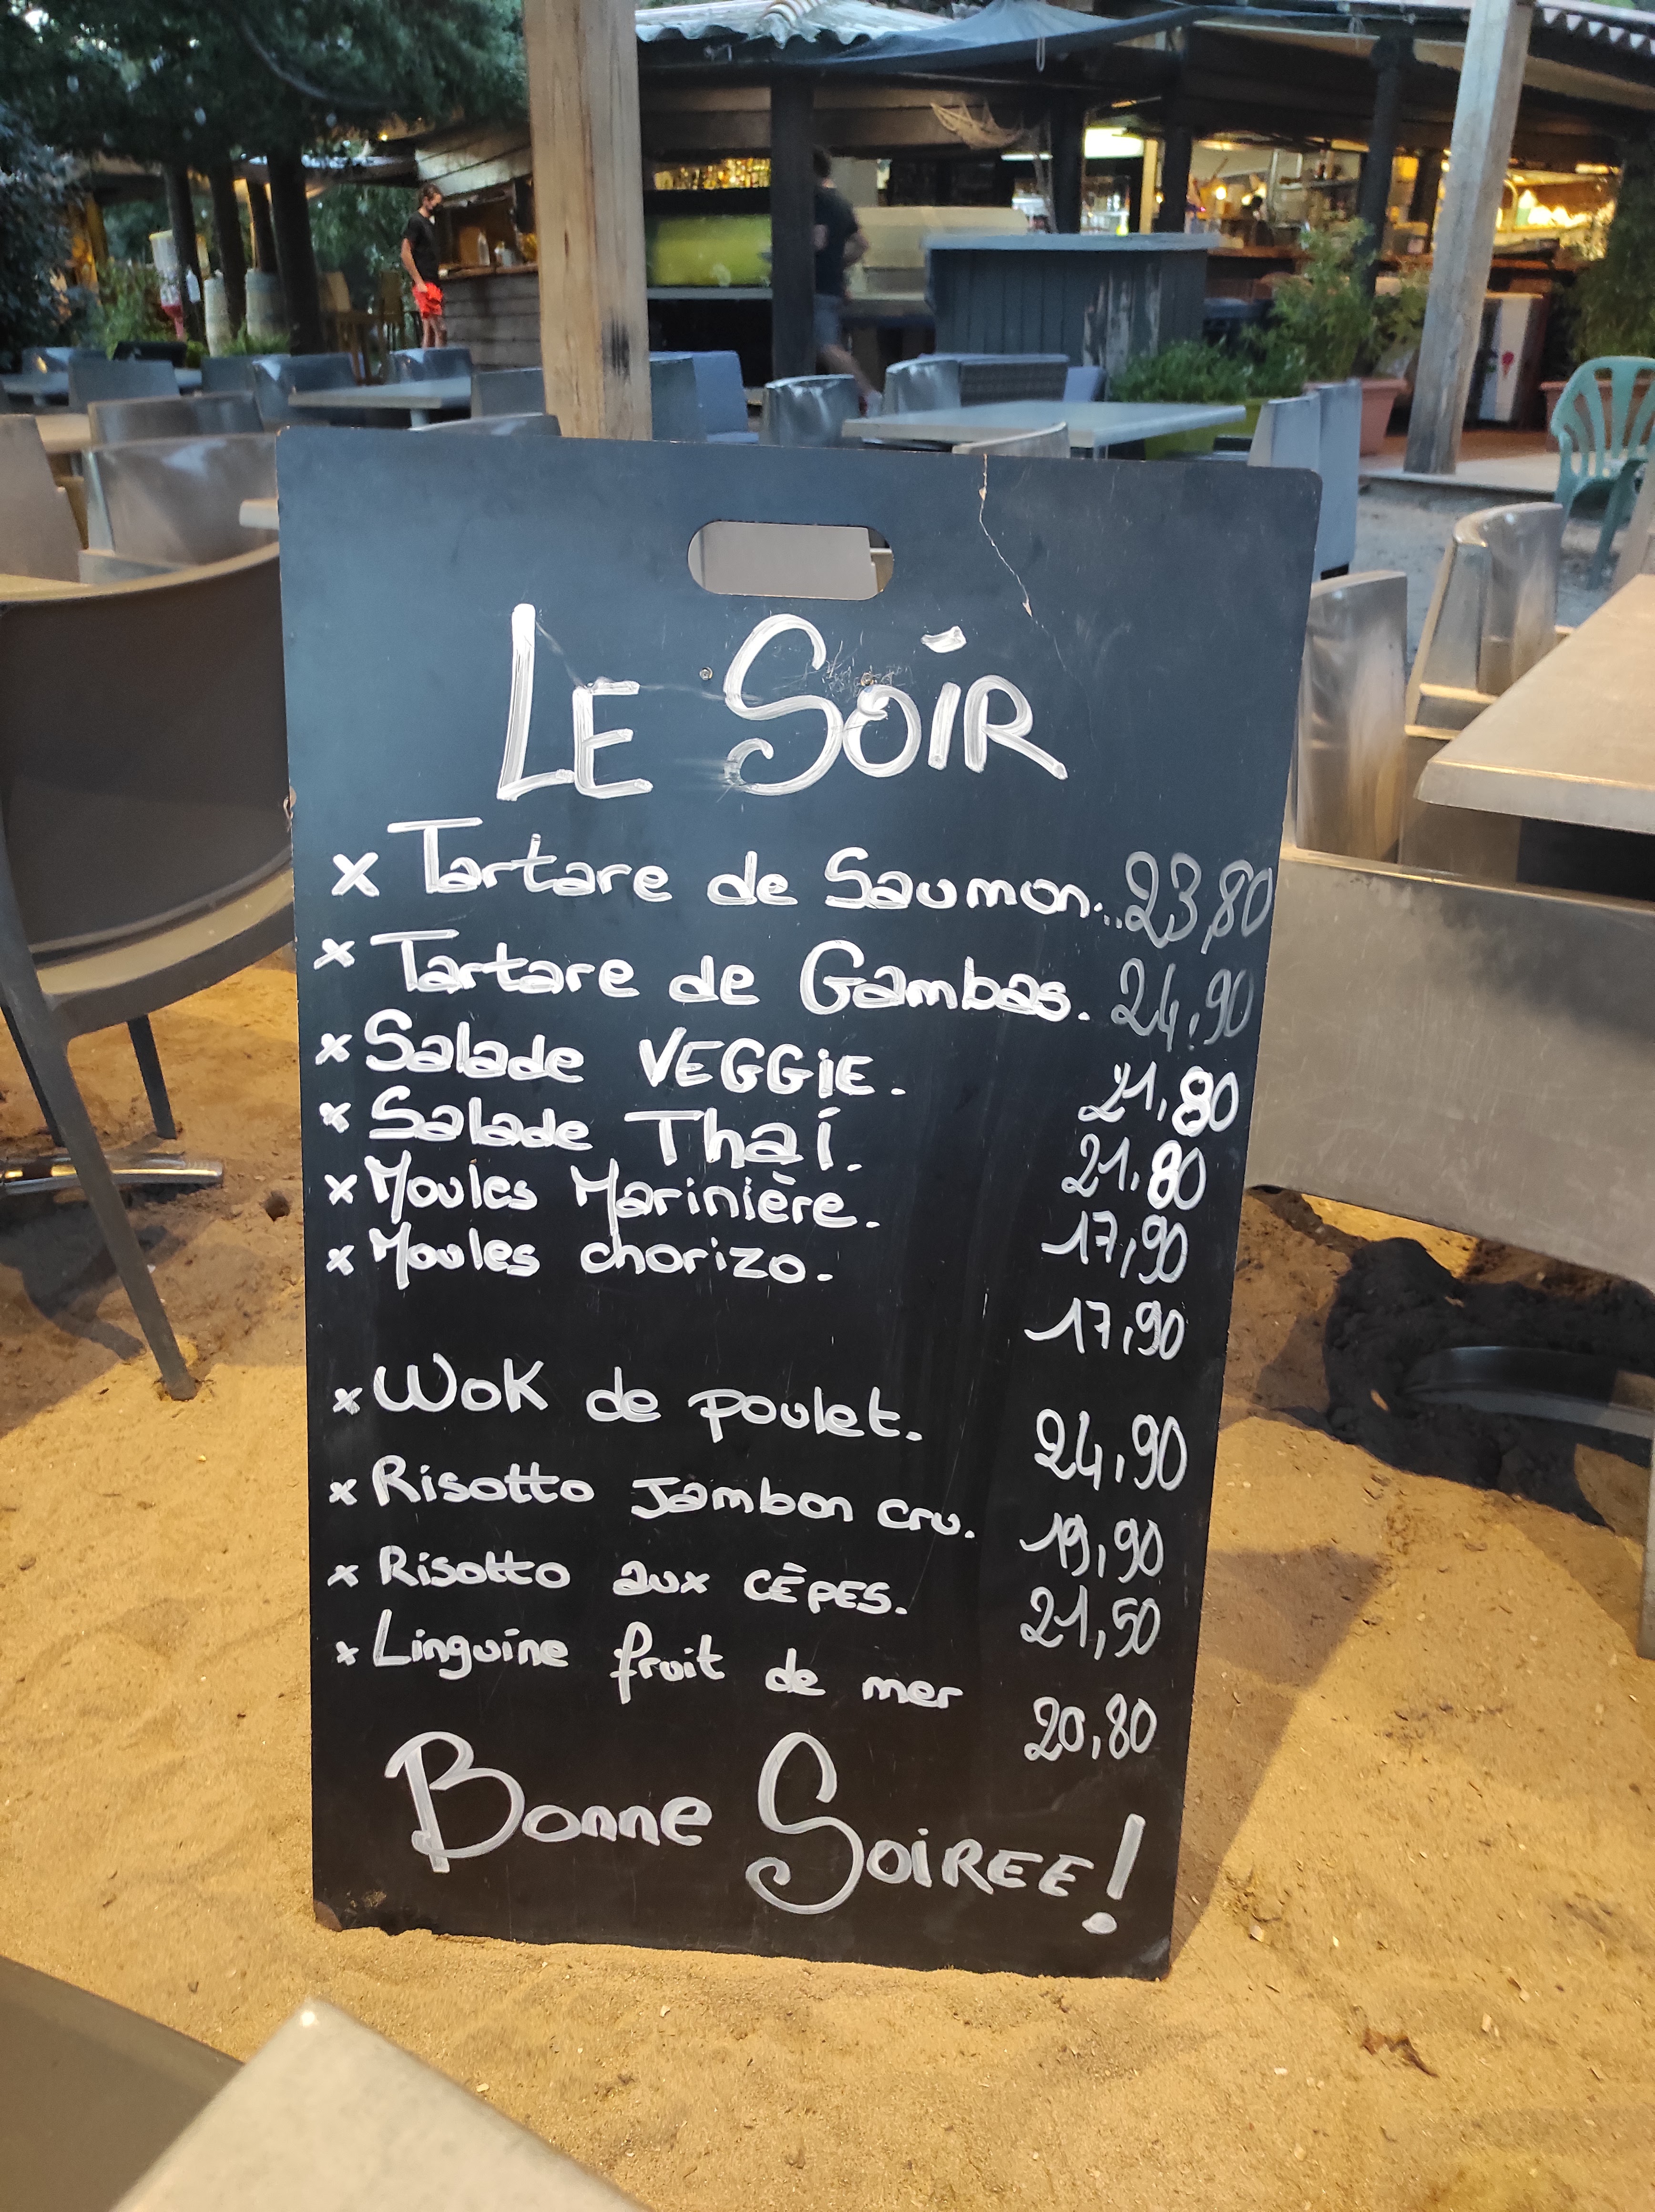 LE SOIR
x Tartare de Saumon... 23,80
x Tartare de Gambas. 24,90
x Salade VEGGIE. 21,80
x Salade Thaï. 21,80
x Moules Marinière. 17,90
x Moules chorizo. 17,90
x Wok de poulet. 24,90
x Risotto Jambon cru. 19,90
x Risotto aux CÈPES. 21,50
x Linguine fruit de mer 20,80
Bonne SOIREE!